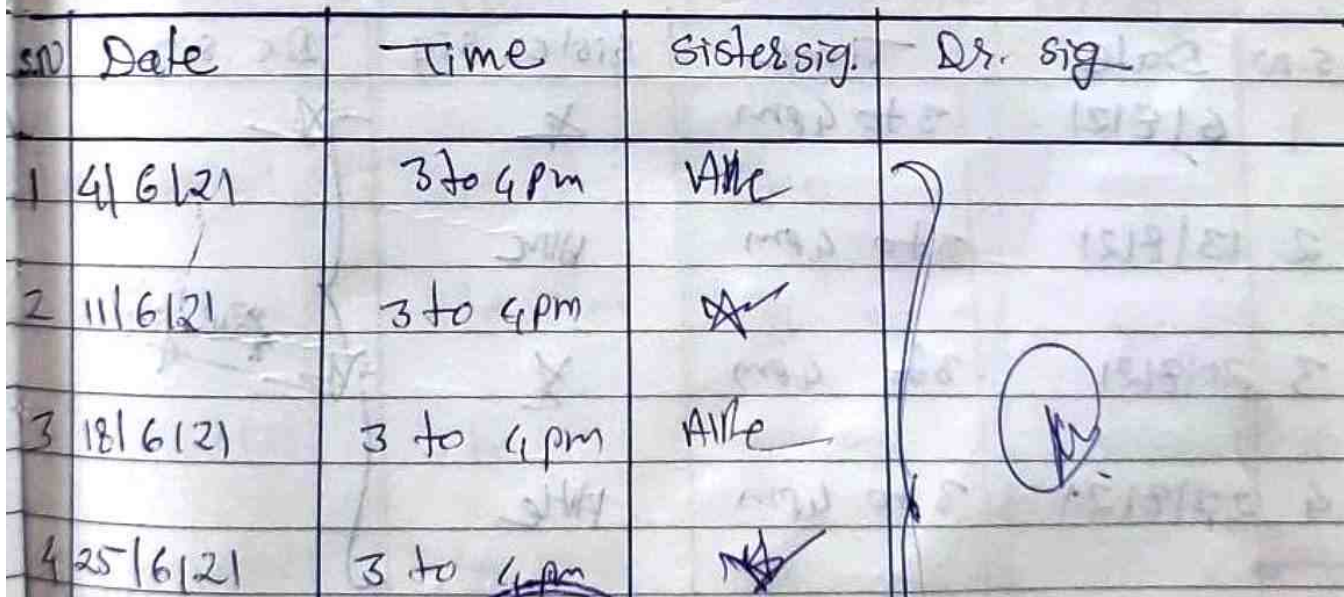 S.N Date Time Sister sig. Dr. sig
1 4/6/21 3 to 4 pm
2 11/6/21 3 to 4 pm
3 18/6/21 3 to 4 pm
4 25/6/21 3 to 4 pm